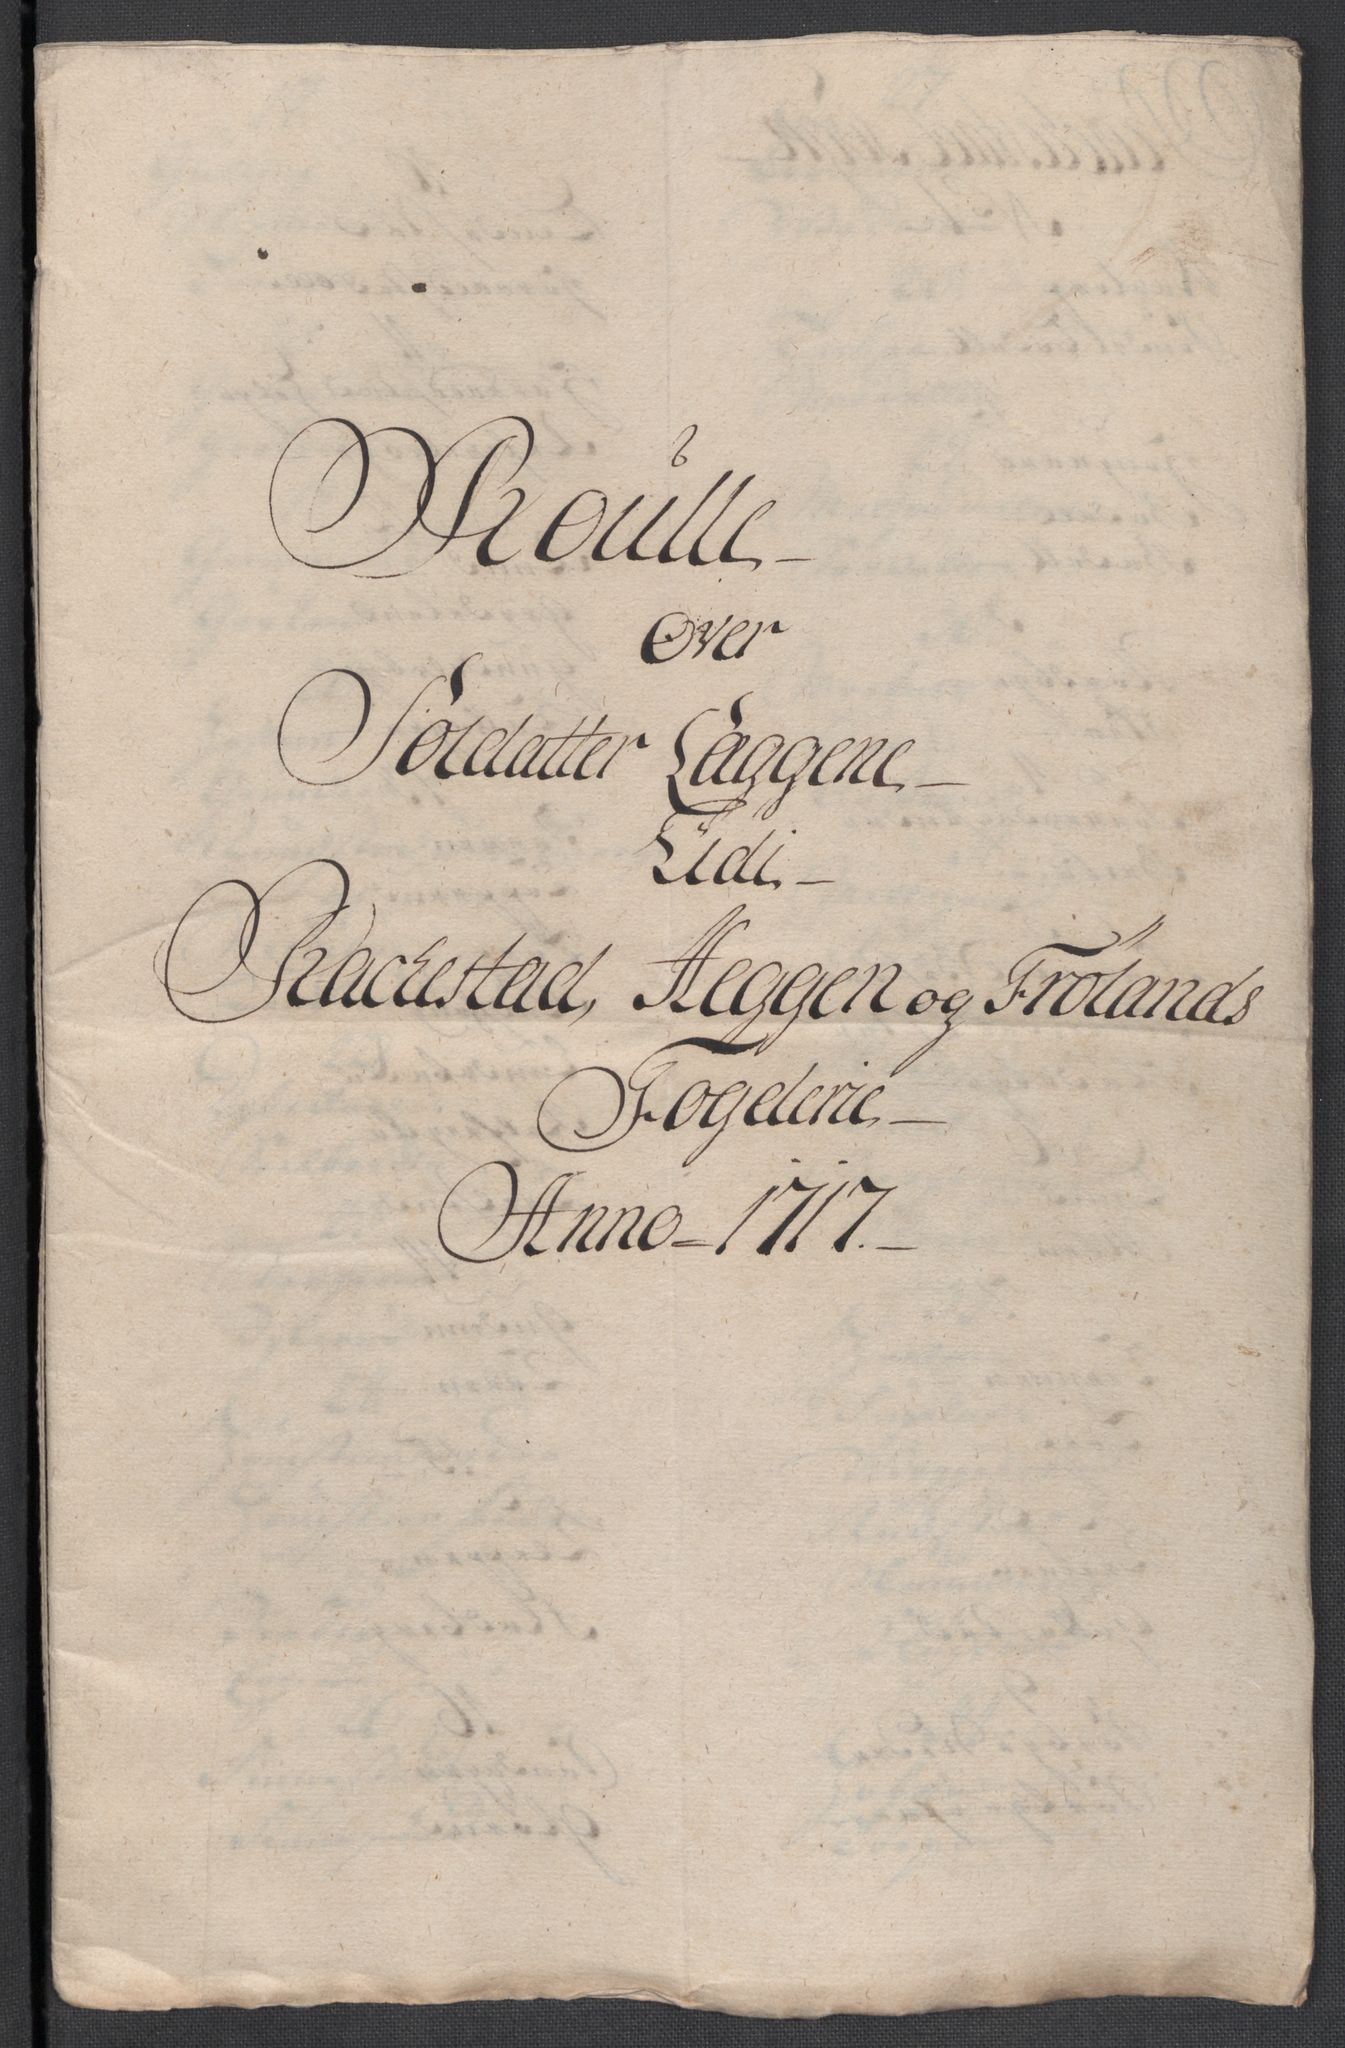 Roulle
Over
Soldatter Læggene
Udi
Rackestad, Heggen og Frølands
Fogderie
Anno 1717.